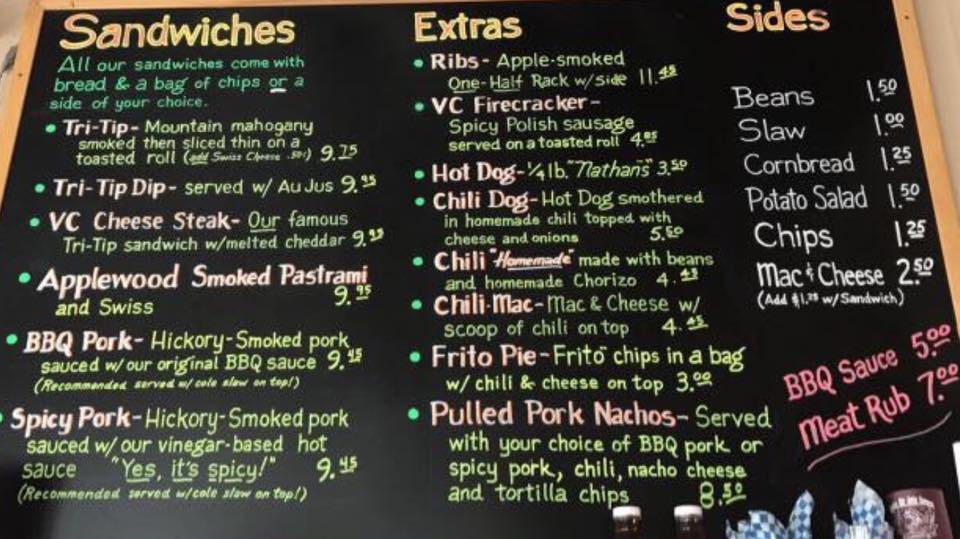 Sandwiches
All our sandwiches come with
bread & a bag of chips or a
side of your choice.
• Tri-Tip- Mountain mahogany
smoked then sliced thin on a
toasted roll (add Swiss Cheese .50¢) 9.75
• Tri-Tip Dip- served w/ Au Jus 9.95
• VC Cheese Steak- Our famous
Tri-Tip sandwich w/melted cheddar 9.95
• Applewood Smoked Pastrami
and Swiss 9.95
• BBQ Pork- Hickory-Smoked pork
sauced w/our original BBQ sauce 9.45
(Recommended served w/ cole slaw on top!)
• Spicy Pork-Hickory-Smoked pork
sauced w/our vinegar-based hot
sauce "Yes, it's spicy!" 9.45
(Recommended served w/cole slaw on top!)
Extras
• Ribs- Apple-smoked
One-Half Rack w/side 11.45
• VC Firecracker-
Spicy Polish sausage
served on a toasted roll 4.95
• Hot Dog-¼ lb. "Nathan's" 3.50
• Chili Dog-Hot Dog smothered
in homemade chili topped with
cheese and onions 5.50
• Chili "Homemade" made with beans
and homemade Chorizo 4.45
• Chili-Mac-Mac & Cheese w/
scoop of chili on top 4.45
• Frito Pie-Frito" chips in a bag
w/ chili & cheese on top 3.00
• Pulled Pork Nachos- Served
with your choice of BBQ pork or
spicy pork, chili, nacho cheese
and tortilla chips 8.50
Sides
Beans 1.50
Slaw 1.00
Cornbread 1.25
Potato Salad 1.50
Chips 1.25
Mac & Cheese 2.50
(Add $1.25 w/Sandwich)
BBQ Sauce 5.00
Meat Rub 7.00